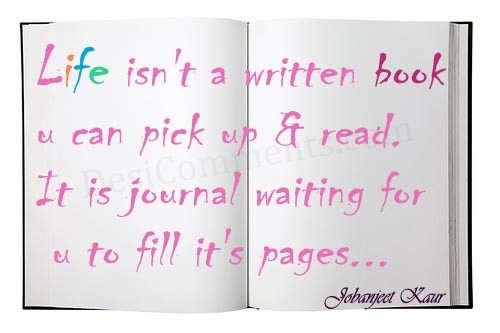 Life isn't a written book
u can pick up & read.
It is journal waiting for
u to fill it's pages...
DesiComments.com
Jobanjeet Kaur